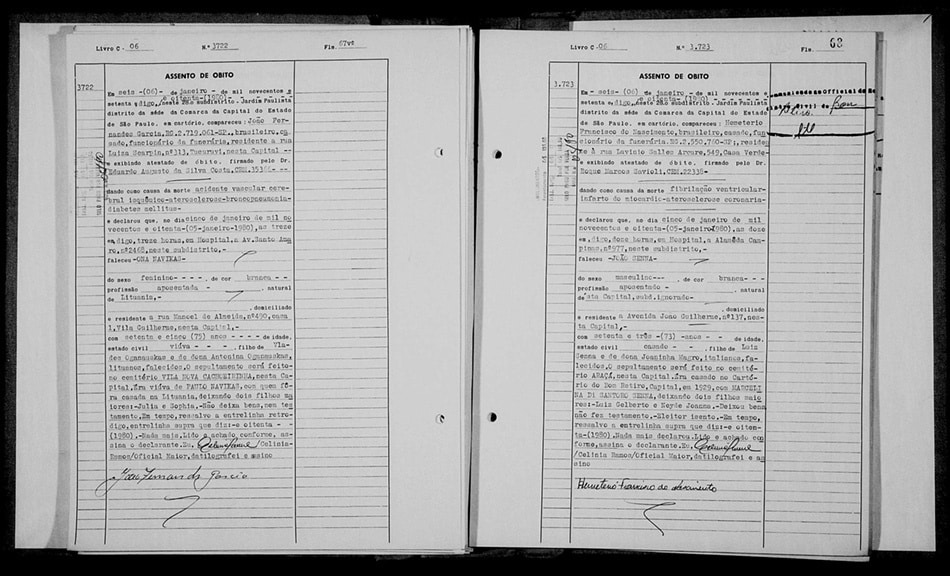 Livro C - 06 N.º 3722 Fls. 67vº
3722
ASSENTO DE OBITO
Em seis -(06) - de janeiro - de mil novecentos e
e oitenta-(1980)
setenta e digo, neste 28.o subdistrito - Jardim Paulista
distrito da séde da Comarca da Capital do Estado
de São Paulo, em cartório, compareceu: João Fer-
nandes Garcia, RG.2.719.061-SP., brasileiro, ca
sado, funcionário da funerária, residente a rua
Luiza Scarpin, nº313, Tucuruvi, nesta Capital -
e exibindo atestado de óbito, firmado pelo Dr.
Eduardo Augusto da Silva Costa, CRM.
dando como causa da morte acidente vascular cere-
bral isquêmico-aterosclerose-broncopneumonia-
diabetes mellitus-
e declarou que, no dia cinco de janeiro de mil no
vecentos e oitenta-(05-janeiro-1980), as treze
em, digo, treze horas, em Hospital, a Av. Santo Ama
ro, nº2468, neste subdistrito,-
faleceu -ONA NAVIKAS-
do sexo feminino- - - -, de cor branca- - -
profissão aposentada - , natural
de Lituania,-
, domiciliado
e residente a rua Manoel de Almeida, nº490, casa
1, Vila Guilherme, nesta Capital,-
com setenta e cinco (75) anos - - - - de idade,
estado civil viúva - - -, filho de Vla-
des Oganauskas e de dona Antonina Oganauskas,
lituanos, falecidos. O sepultamento será feito
no cemitério VILA NOVA CACHOEIRINHA, nesta Ca-
pital. Era viúva de PAULO NAVIKAS, com quem fô-
ra casada na Lituania, deixando dois filhos ma
iores: Julia e Sophia. -Não deixa bens, nem tes
tamento. Em tempo, ressalvo a entrelinha retro-
digo, entrelinha supra que diz:-e oitenta -
(1980). -Nada mais. Lido e achado conforme, as-
sina o declarante. Eu, /Celinia
Ramos/Oficial Maior, datilografei e assino
João Fernandes Garcia
Livro C - 06 N.º 3.723 Fls. 68
3.723
ASSENTO DE OBITO
Em seis- (06) - de janeiro - de mil novecentos e
e oitenta-(1980)
setenta e digo, neste 28.o subdistrito - Jardim Paulista
distrito da séde da Comarca da Capital do Estado
de São Paulo, em cartório, compareceu: Hemeterio
Francisco do Nascimento, brasileiro, casado, fun
cionário da funerária. RG.2.550.740-SP; residen
te à rua Lavinio Salles Arcure, 549, Casa Verde-
e exibindo atestado de óbito, firmado pelo Dr.
Roque Marcos Savioli, CRM.22338-
dando como causa da morte fibrilação ventricular-
infarto do miocardio-aterosclerose coronaria-
e declarou que, no dia cinco de janeiro de mil
novecentos e oitenta-(05-janeiro-1980), as doze
em, digo, doze horas, em Hospital, a Alameda Cam-
pinas, nº977, neste subdistrito,-
faleceu -JOÃO SENNA-
do sexo masculino---, de cor branca- - - -
profissão aposentado - , natural
desta Capital, subd. ignorado-
, domiciliado
e residente a Avenida Joao Guilherme, nº137, nes-
ta Capital,-
com setenta e três -(73) -anos- - - de idade,
estado civil casado - - -, filho de Luiz
Senna e de dona Joaninha Magro, italianos, fa-
lecidos. O sepultamento será feito no cemité-
rio ARAÇÁ, nesta Capital. Era casado no Cartó-
rio do Bom Retiro, Capital, em 1929, com MARCELI
NA DI SANTORO SENNA, deixando dois filhos maio
res:- Luis Gelberto e Neyde Joanna.-Deixou bens
não fez testamento.-Eleitor isento.-Em tempo,
ressalvo a entrelinha supra que diz:-e oiten-
ta-(1980). Nada mais declarou. Lido e achado con
forme, assina o declarante. Eu,
/Celinia Ramos/Oficial Maior, datilografei e as
sino
Hemeterio Francisco do Nascimento